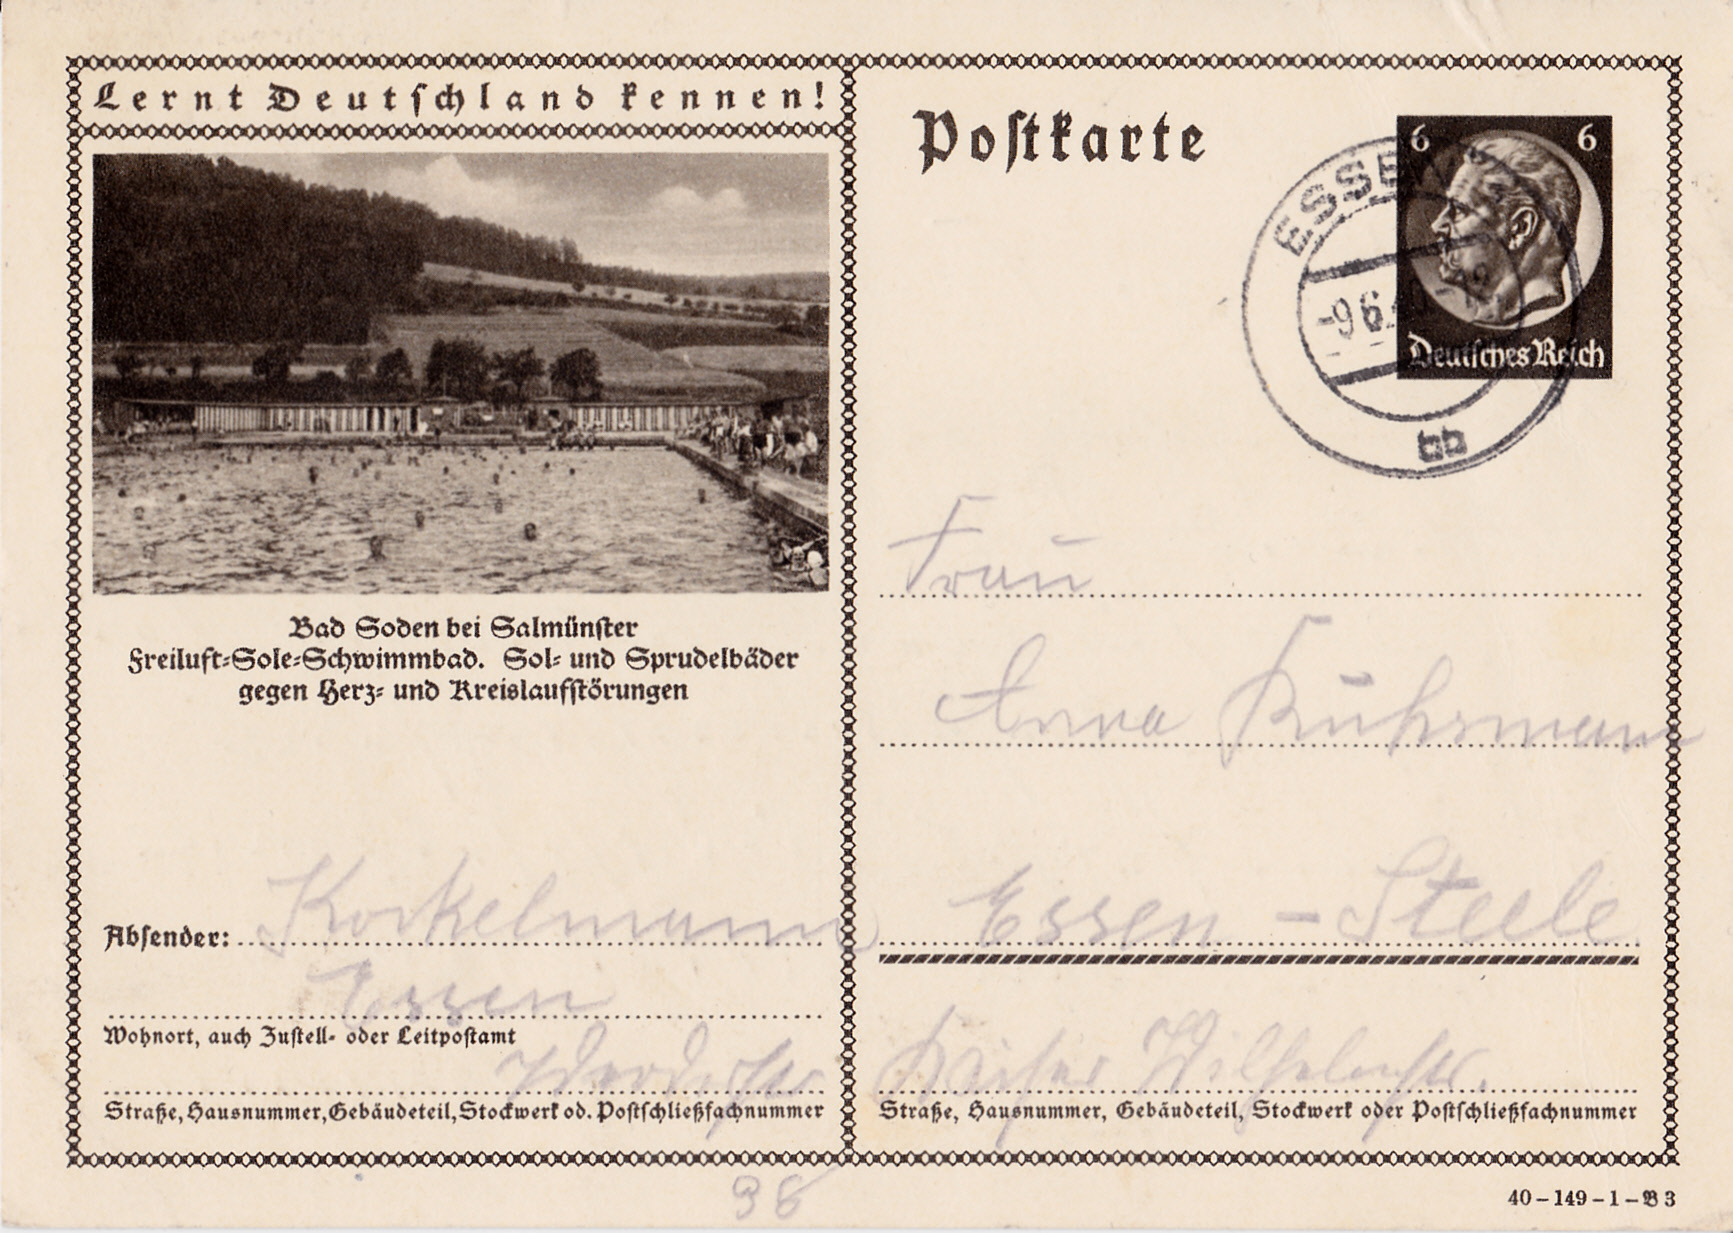 Lernt Deutschland kennen!
Bad Soden bei Salmünster
Freiluft=Sole=Schwimmbad. Sol= und Sprudelbäder
gegen Herz= und Kreislaufstörungen
Absender:
Essen
Wohnort, auch Zustell- oder Leitpostamt
Straße, Hausnummer, Gebäudeteil, Stockwerk od. Postschließfachnummer
38
Postkarte
6 6
Deutsches Reich
ESSEN
-9.6.
bb
Frau
Anna Kuhrmann
Essen - Steele
Kaiser Wilhelmstr.
Straße, Hausnummer, Gebäudeteil, Stockwerk oder Postschließfachnummer
40-149-1-B3